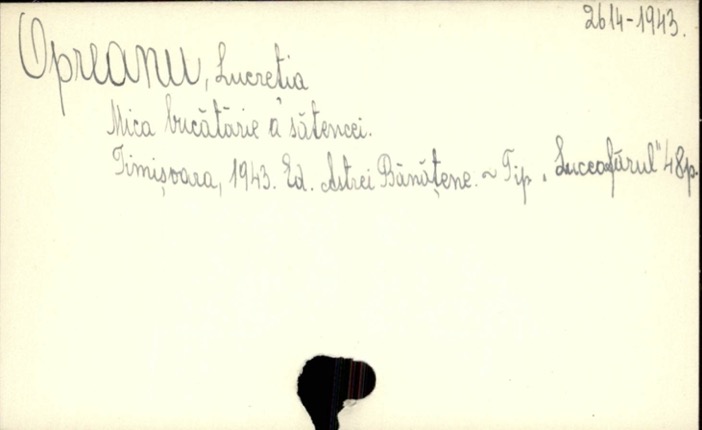 2614-1943.
Opreanu, Lucreția
Mica bucătărie a sătencei.
Timișoara, 1943. Ed. Astrei Bănățene. ~ Tip. „Luceafărul" 48p.